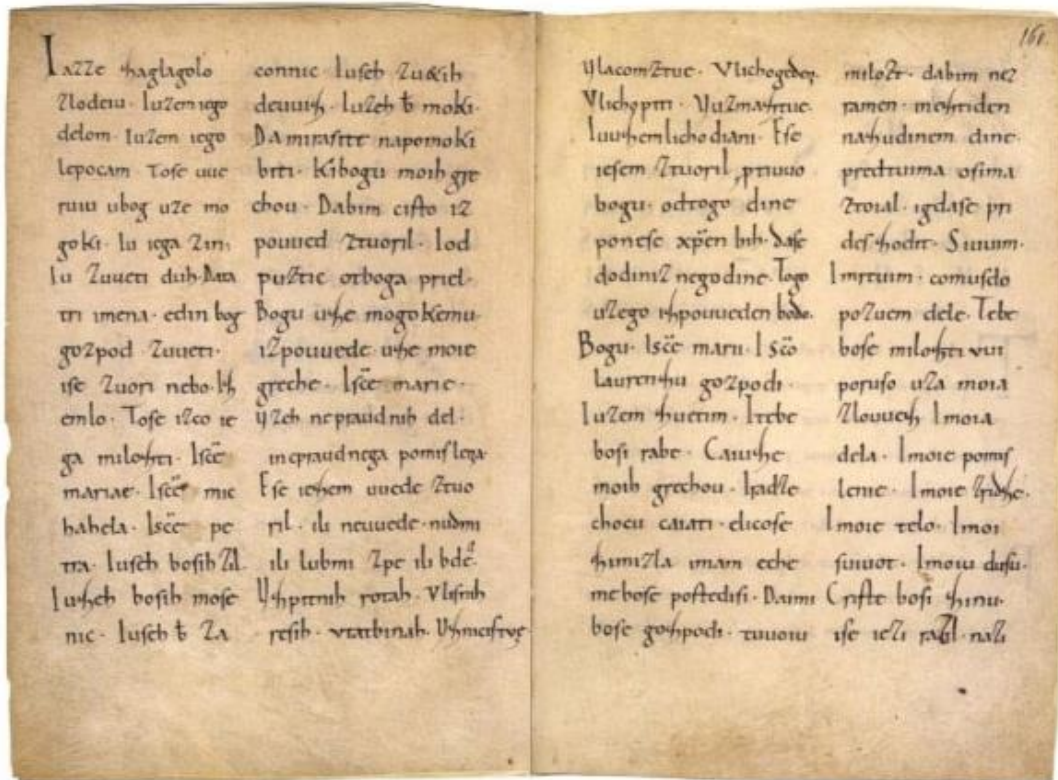 161.
Iazze zaglagolo
zlodeiu. Iuzem iego
delom. Iuzem iego
lepocam. Tose uue
ruiu ubog uze mo
goki. Iu iega zin.
Iu zuueti duh. Data
tri imena. edin bog
gozpod zuueti.
ise zuori nebo. Iz
emlo. Tose izco ie
ga milozti. Iscē
mariae. Iscē mic
hahela. Iscē pe
tra. Iuseh bosih zil.
Iuzeh bosih mose
nic. Iuseh b za
connic Iuseh zu&ih
deuuiz. Iuzeh b moki.
Da mirasite napomoki
biti. Kibogu moih gre
chou. Dabim cisto iz
pouued ztuoril. Iod
puztic otboga priel.
Bogu uze mogokemu.
izpouuede. uze moie
greche. Iscē marie.
Yzeh nepraudnih del.
inepraudnega pomislena.
Ese iezem uuede ztuo
ril. ili neuuede. nudmi
ili lubmi zpe ili bde.
Vzpitnih rotah. Vlisnih
resih. vtatbinah. Uzmeistue
Ylacomztue. Vlichogeden.
Vlichopiti. Yuzmaztue.
Iuuzemlichodiani. Ese
iesem ztuoril, ptiuuo
bogu. odtogo dine
ponese xp̄en bih. dase
dodiniz negodine. Togo
uzego izpouueden bodo.
Bogu. Iscē marii. I scō
laurenzu gozpodi.
Iuzem zuetim. Itebe
bosi rabe. Caiuze
moih grechou. Iradze
chocu caiati. elicose
zimizla imam eche
me bose postedisi. Daimi
bose gozpodi. tuuoiu
milozt. dabim nez
ramen. neztiden
nazudinem dine.
predtuima osima
ztoial. igdase pri
deszodit. Siuuim.
Imrtuim. comusdo
pozuem dele. Tebe
bose milozti vui
poruso uza moia
zlouuez. Imoia
dela. Imoie pomis
lenie. Imoie zridze.
Imoie telo. Imoi
siuuot. Imoiu dusu.
Criste bosi zinu.
ise iezi razil. nazi